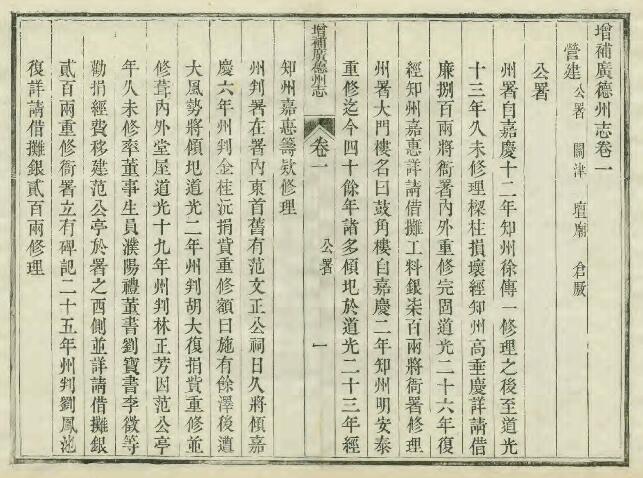 增補廣德州志卷一
營建 公署 關津 壇廟 倉厫
公署
州署自嘉慶十二年知州徐傳一修理之後至道光
十三年久未修理樑柱損壞經知州高垂慶詳請借
廉捌百兩將衙署內外重修完固道光二十六年復
經知州嘉惠詳請借攤工料銀柒百兩將衙署修理
州署大門樓名曰鼓角樓自嘉慶二年知州明安泰
重修迄今四十餘年諸多傾圯於道光二十三年經
知州嘉惠籌欵修理
增補廣德州志 卷一 公署 一
州判署在署內東首舊有范文正公祠日久將傾嘉
慶六年州判金桂沅捐貲重修額曰施有餘澤後遭
大風勢將傾圯道光二年州判胡大復捐貲重修並
修葺內外堂屋道光十九年州判林正芳因范公亭
年久未修率董事生員濮陽禮董書劉寶書李徵等
勸捐經費移建范公亭於署之西側並詳請借攤銀
貳百兩重修衙署立有碑記二十五年州判劉鳳池
復詳請借攤銀貳百兩修理